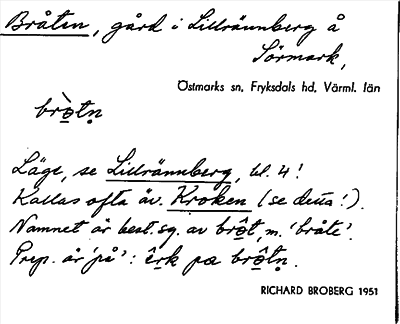 Bråten, gård i Lillrännberg å
Sörmark,
Östmarks sn, Fryksdals hd, Värml. län
brò̤tn̥
Läge, se Lillrännberg, bl. 4!
Kallas ofta äv. Kroken (se detta!).
Namnet är best. sg. av brô̤t, m. 'bråte'.
Prep. är 'på': ê̤rk pœ brô̤tn̥.
RICHARD BROBERG 1951